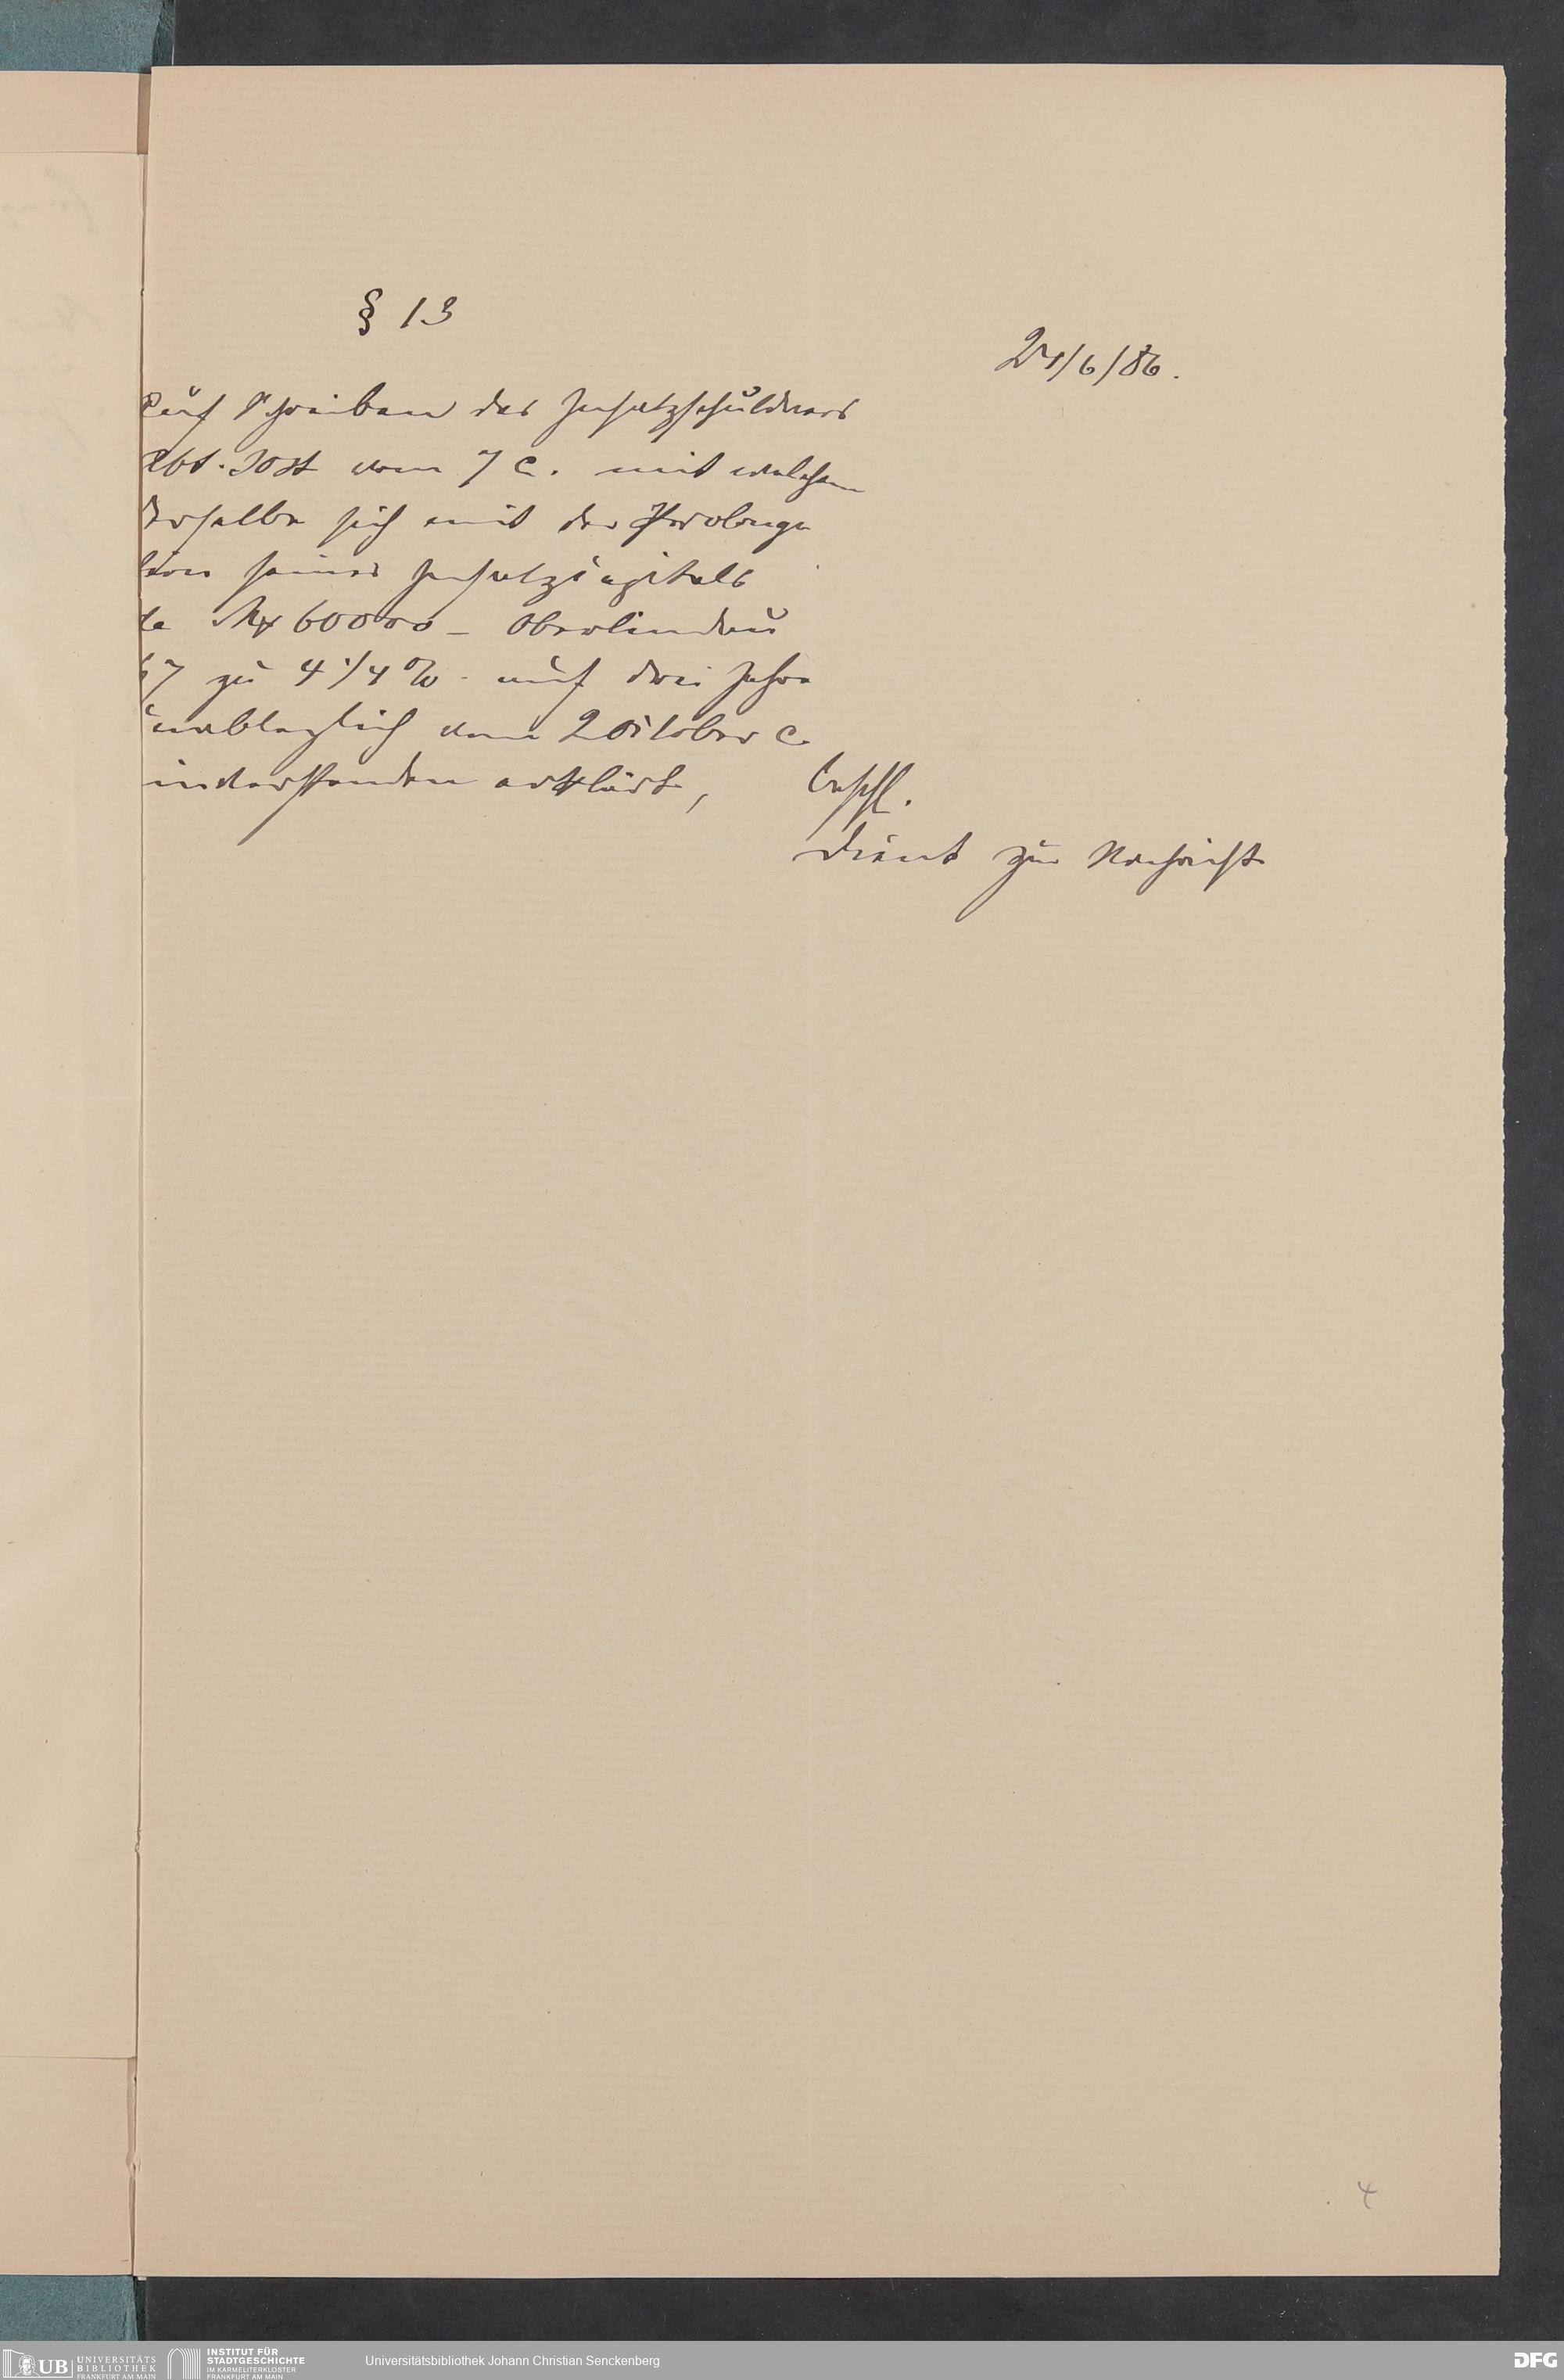 § 13
24/6/86.
Auf Schreiben des Insatzschuldners
Abt. Jost vom 7 c. mit welchem
derselbe sich mit der Prolonga
tion seines Insatzcapitals
de Mk 60000 – Oberlindau
67 zu 4 1/4 % auf drei Jahre
unableglich vom 2 October c.
einverstanden erklärt,
beschl.
dient zur Nachricht
4
UB UNIVERSITÄTS
BIBLIOTHEK
FRANKFURT AM MAIN
INSTITUT FÜR
STADTGESCHICHTE
IM KARMELITERKLOSTER
FRANKFURT AM MAIN
Universitätsbibliothek Johann Christian Senckenberg
DFG